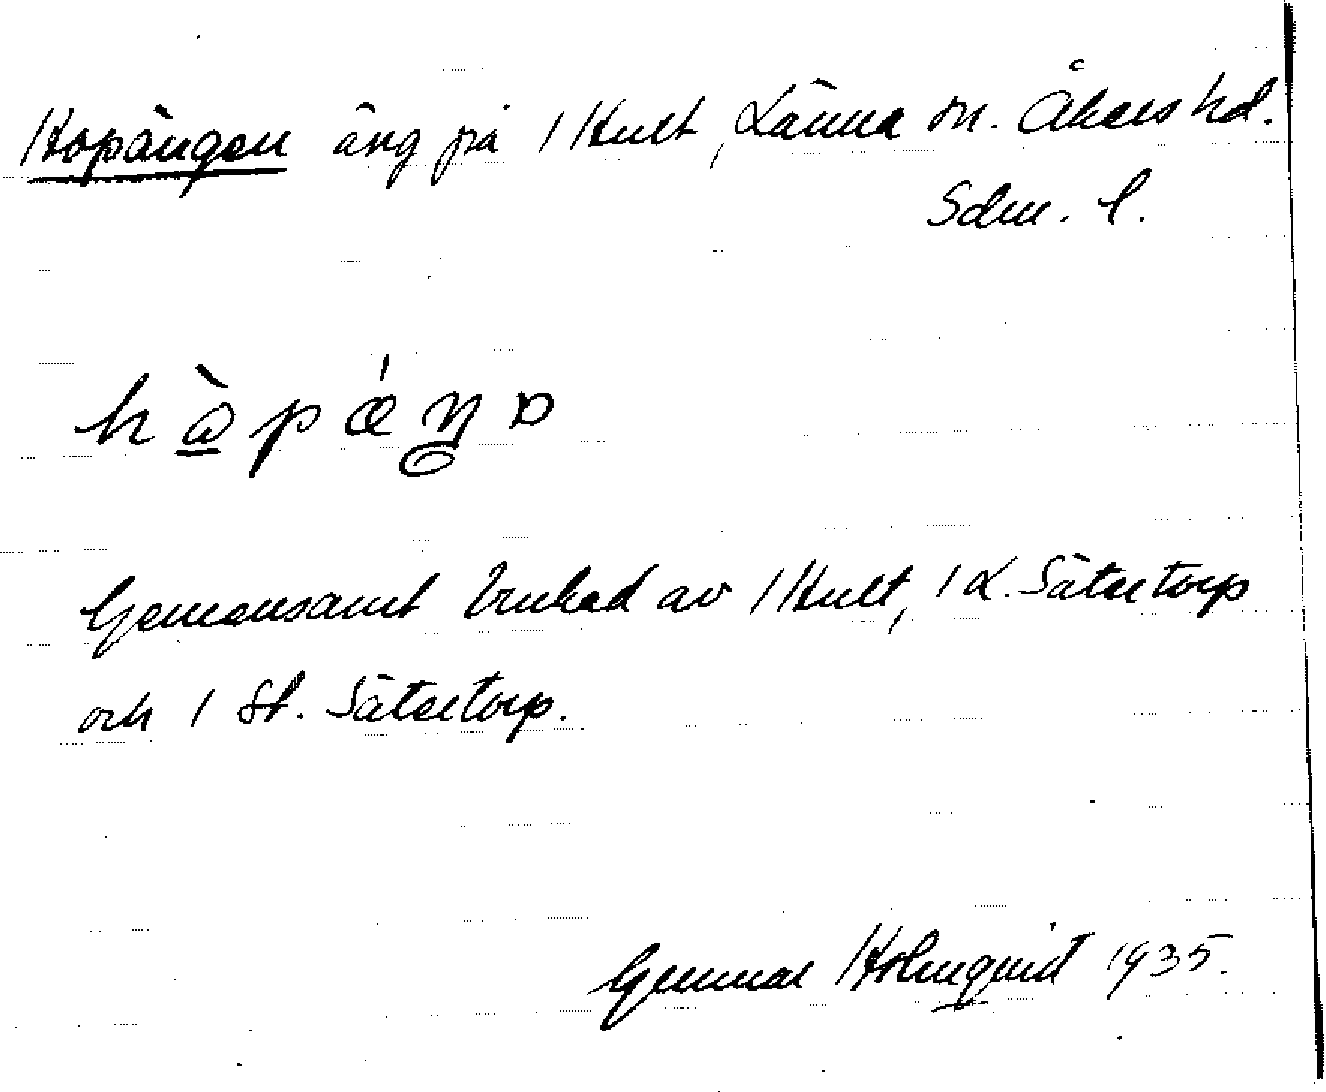 Hopängen äng på Hult, Länna sn. Åkers hd.
Sdm. l.
Gemensamt brukad av Hult, / L. Sätertorp
och / St. Sätertorp.
Gunnar Holmquist 1935.